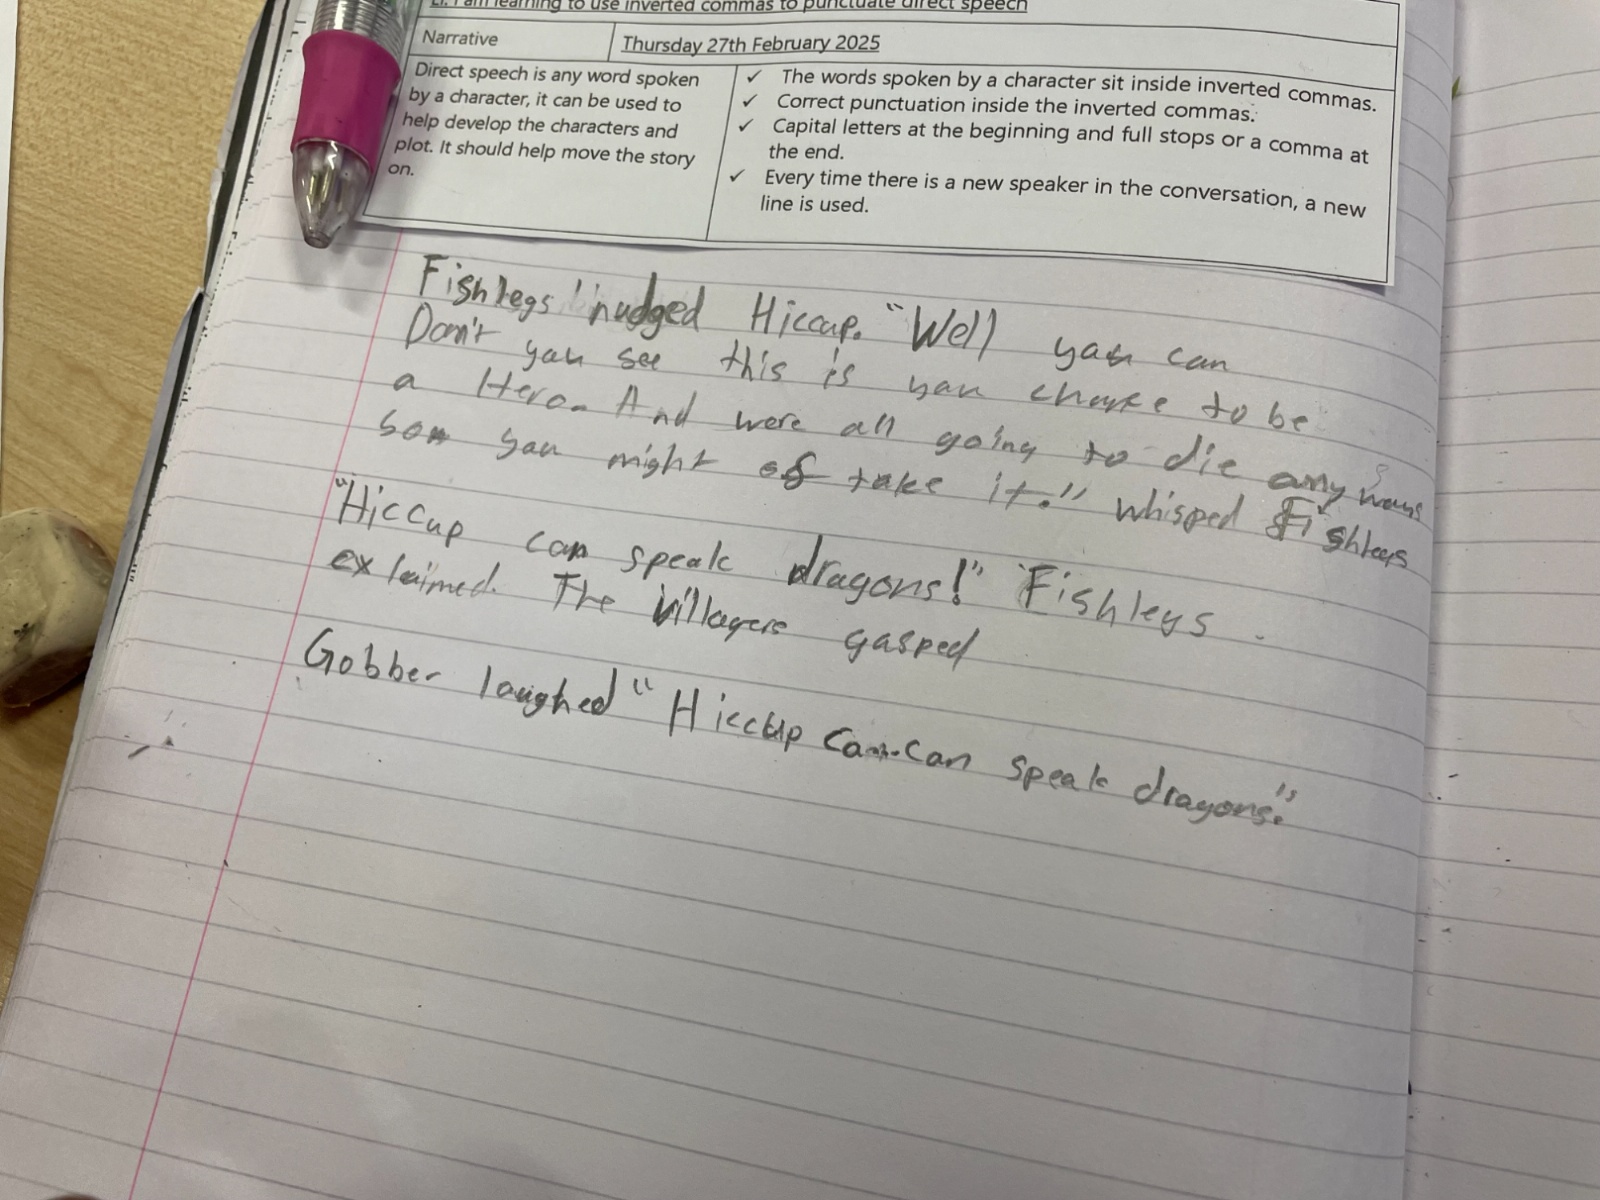 LI: I am learning to use inverted commas to punctuate direct speech
Narrative
Thursday 27th February 2025
Direct speech is any word spoken
by a character, it can be used to
help develop the characters and
plot. It should help move the story
on.
✓ The words spoken by a character sit inside inverted commas.
✓ Correct punctuation inside the inverted commas.
✓ Capital letters at the beginning and full stops or a comma at
the end.
✓ Every time there is a new speaker in the conversation, a new
line is used.
Fishlegs nudged Hiccup. "Well you can
Don't you see this is you to be
a Hero. And were all going to die any ways
you might of take it." whisped Fishlegs
"Hiccup can speak dragons!" Fishlegs
exlaimed. The villagers gasped
Gobber laughed "Hiccup can-can speak dragons."